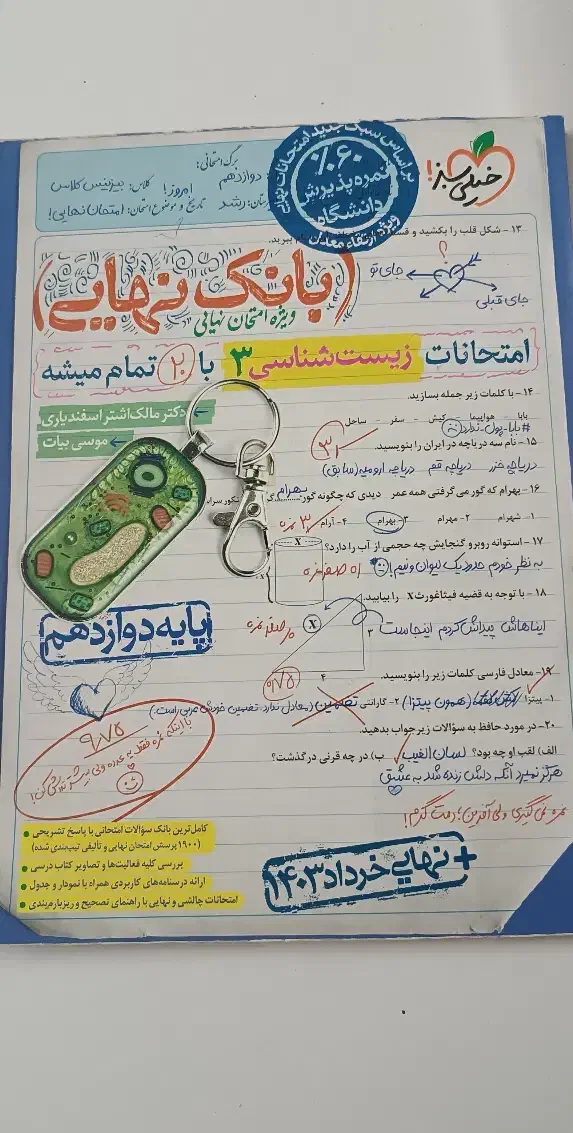 خیلی سبز!
برگ امتحانی:
دوازدهم
امروز!
کلاس: بیزینس کلاس
رشد
تاریخ و موضوع امتحان: امتحان نهایی!
براساس سبک جدید امتحانات نهایی
٪۶۰
نمره پذیرش
دانشگاه
ویژه ارتقاء معدل
۱۳- شکل قلب را بکشید و
ببرید.
؟
جای تو
جای قبلی
(بانک نهایی)
ویژه امتحان نهایی
امتحانات زیست‌شناسی ۳ با ۲۰ تمام میشه
دکتر مالک اشتر اسفندیاری
موسی بیات
۱۴- با کلمات زیر جمله بسازید.
بابا - هواپیما - کیش - سفر - ساحل
#بابا_پول_ندارد
۱۵- نام سه دریاچه در ایران را بنویسید.
دریاچه خزر دریاچه قم دریاچه ارومیه (سابق)
۱۶- بهرام که گور می‌گرفتی همه عمر دیدی که چگونه گور بهرام
۱- شهرام ۲- مهرام ۳- بهرام ۴- آرام
۱۷- استوانه روبرو گنجایش چه حجمی از آب را دارد؟
به نظر خودم حدود یک لیوان و نیم!
x
۱۸- با توجه به قضیه فیثاغورث x را بیابید.
ایناهاش پیداش کردم اینجاست
x
۳
۴
۰/۷۵
پایه دوازدهم
۱۹- معادل فارسی کلمات زیر را بنویسید.
۱- پیتزا (همون پیتزا) ۲- گارانتی تضمین (معادل ندارد، تضمین خودش عربی است.)
۲۰- در مورد حافظ به سؤالات زیر جواب بدهید.
الف) لقب او چه بود؟ لسان الغیب ب) در چه قرنی درگذشت؟
هرگز نمیرد آنکه دلش زنده شد به عشق
نمره نمی‌گیری ولی آفرین؛ دمت گرم!
۹/۷۵
کامل‌ترین بانک سؤالات امتحانی با پاسخ تشریحی
(۱۹۰۰ پرسش امتحان نهایی و تألیفی تیپ‌بندی شده)
بررسی کلیه فعالیت‌ها و تصاویر کتاب درسی
ارائه درسنامه‌های کاربردی همراه با نمودار و جدول
امتحانات چالشی و نهایی با راهنمای تصحیح و ریزبارم‌بندی
+ نهایی خرداد ۱۴۰۳